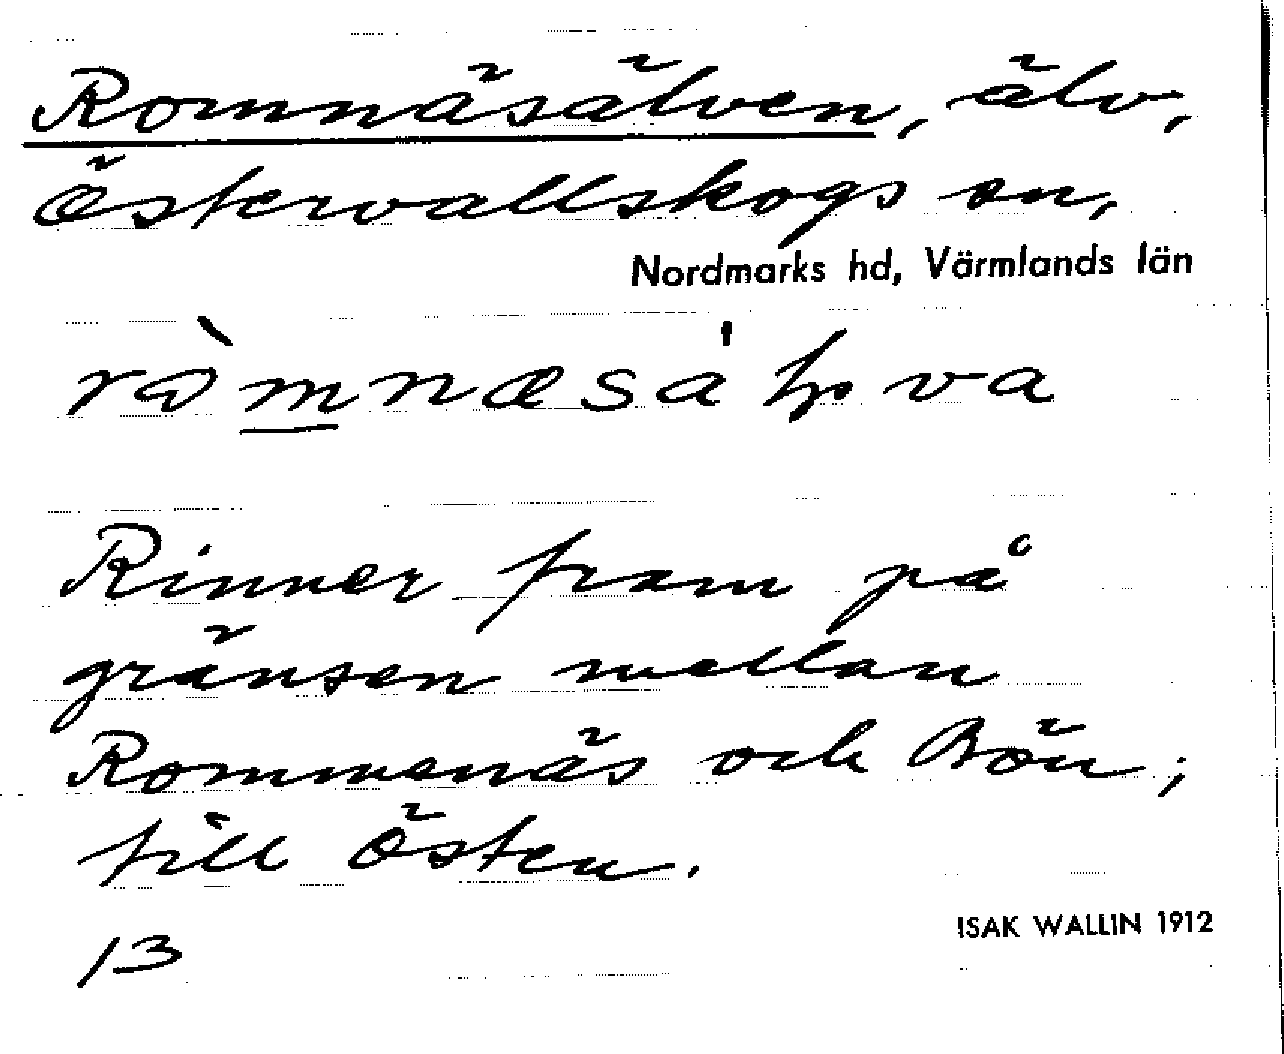 Romnäsälven, älv,
Östervallskogs sn,
Nordmarks hd, Värmlands län
Rinner fram på
gränsen mellan
Rommenäs och Bön;
till Östen.
13
ISAK WALLIN 1912